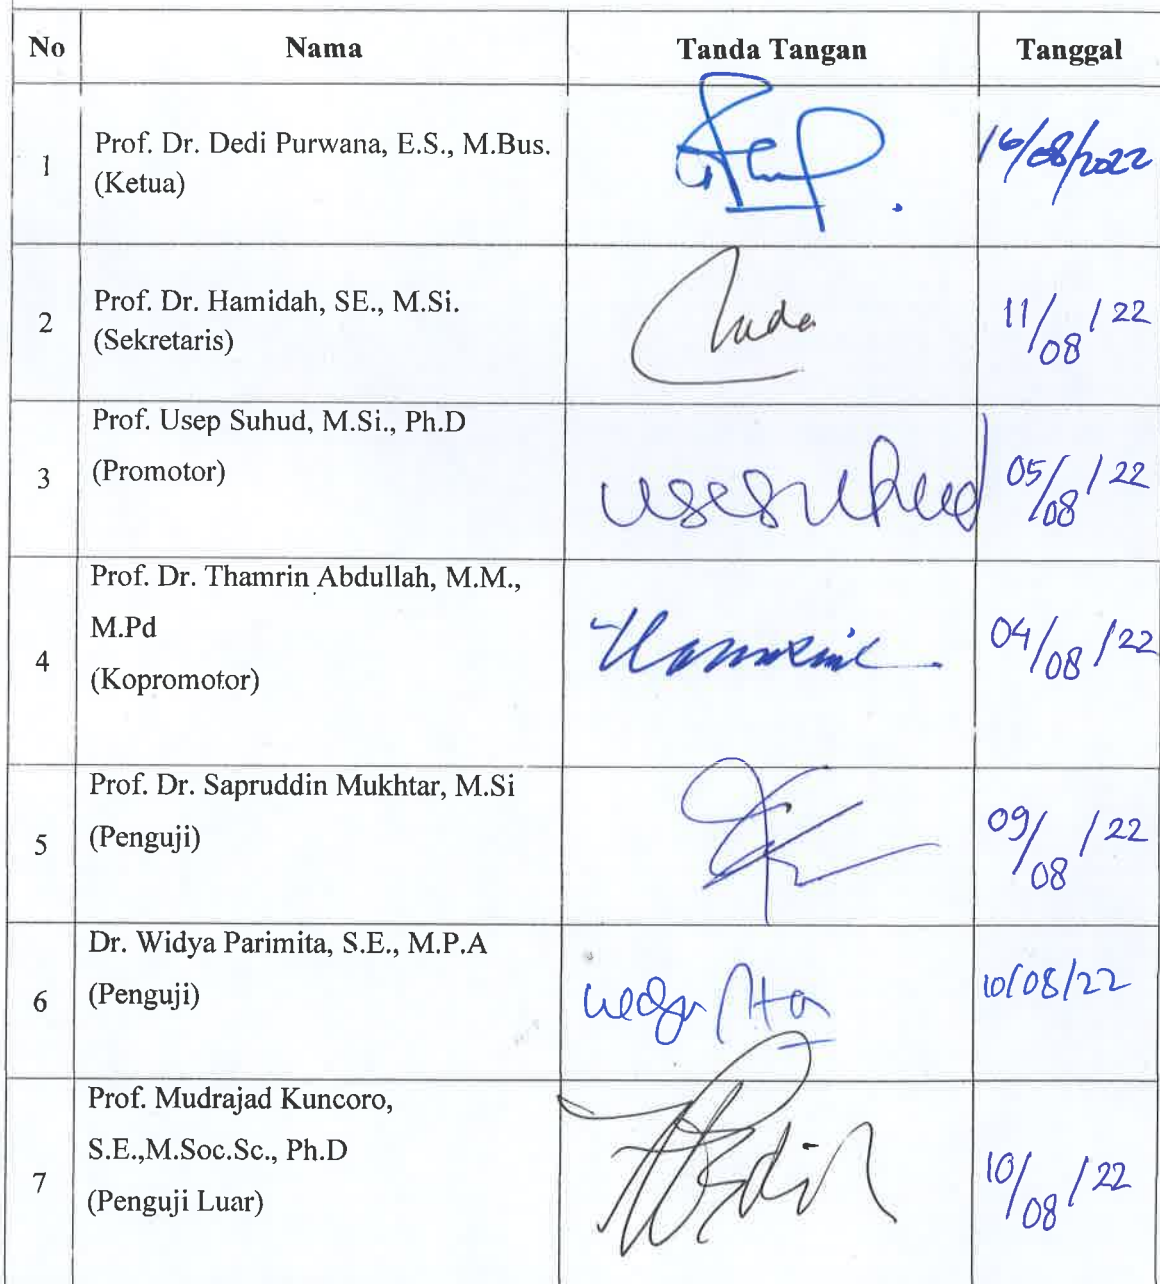 No Nama Tanda Tangan Tanggal
1 Prof. Dr. Dedi Purwana, E.S., M.Bus. 16/08/2022
(Ketua)
2 Prof. Dr. Hamidah, SE., M.Si. 11/08/22
(Sekretaris)
Prof. Usep Suhud, M.Si., Ph.D
3 (Promotor) usepsuhud 05/08/22
Prof. Dr. Thamrin Abdullah, M.M.,
M.Pd
4 (Kopromotor) Thamrin 04/08/22
Prof. Dr. Sapruddin Mukhtar, M.Si
5 (Penguji) 09/08/22
Dr. Widya Parimita, S.E., M.P.A
6 (Penguji) 10/08/22
Prof. Mudrajad Kuncoro,
S.E.,M.Soc.Sc., Ph.D
7 (Penguji Luar) 10/08/22